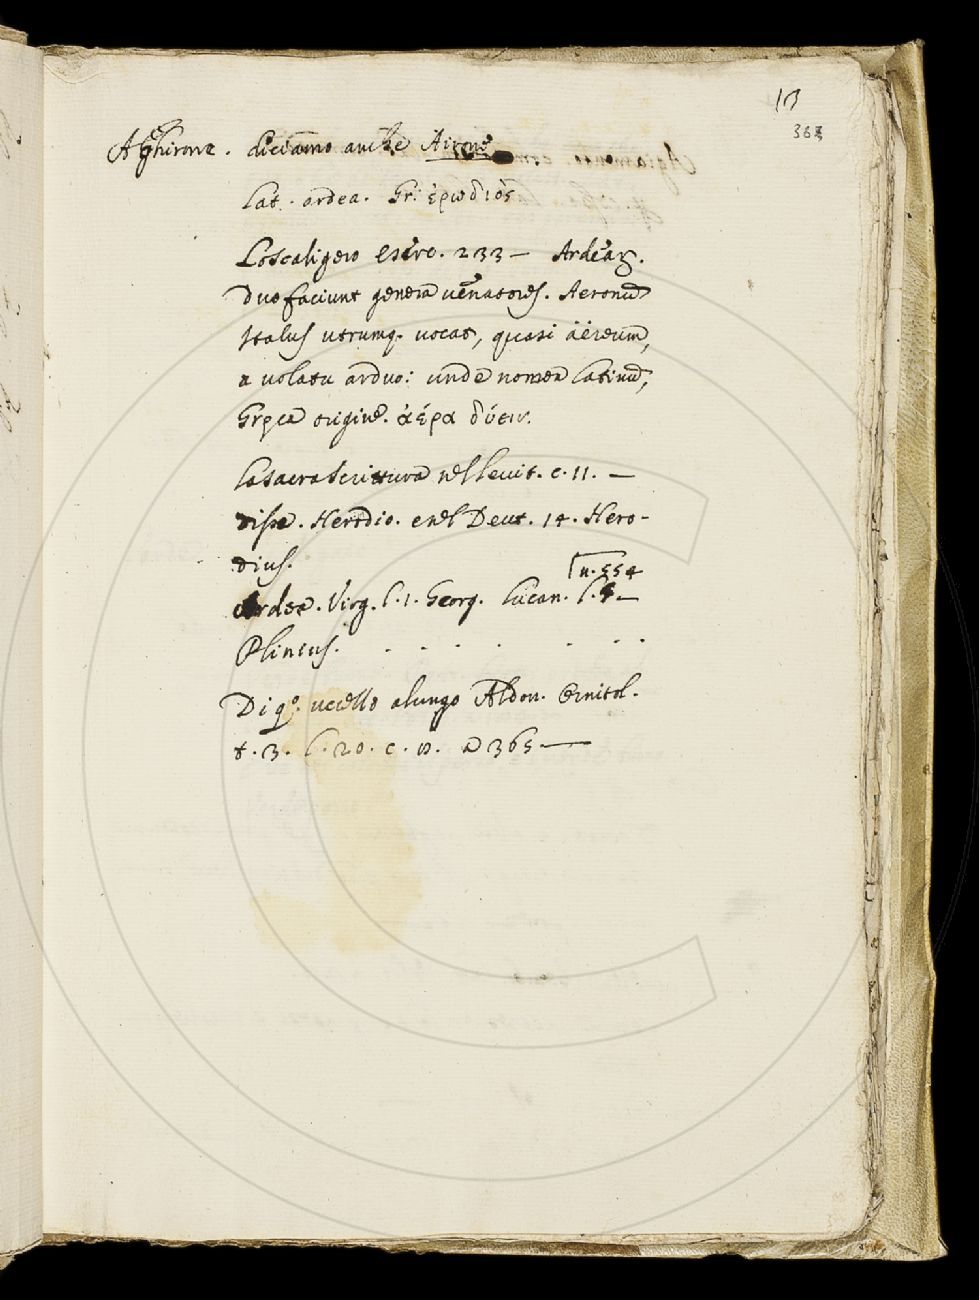 13
363
Aghirone. diciamo anche Airone
Lat. ardea. Gr: ἐρωδιὸς
Lo Scaligero eserc. 233 — Ardeae.
duo faciunt genera uenatores. Aeronem
Italus utrumq. uocat, quasi äëreum,
a uolatu arduo: unde nomen latinum,
Gręca origine. ἀέρα δύειν.
La Sacra Scrittura nel Leuit. c. 11. —
disse. Herodio. e nel Deut. 14. Hero-
dius.
n. 554
Ardea. Virg. l. 1. Georg. Lucan. l. 5 —
Plinius. . . . . . . .
Di qo. uccello a lungo Aldou. Ornitol.
t. 3. l. 20. c. a 365 —